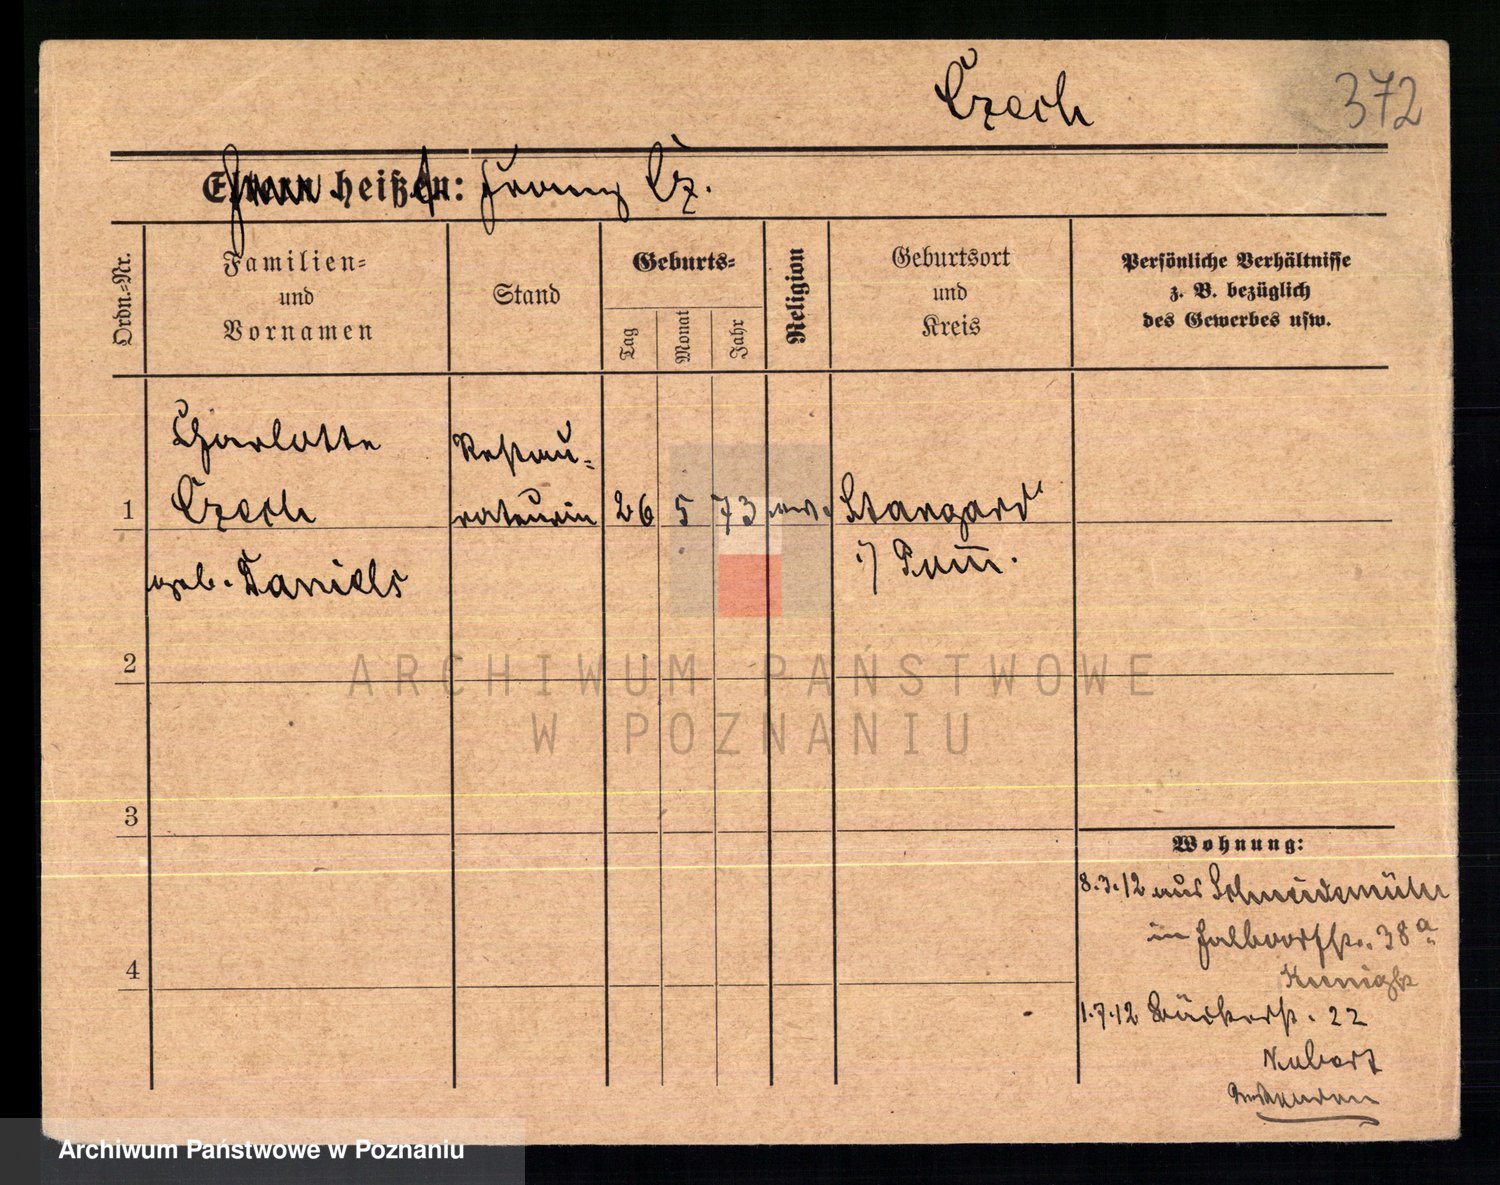 Czech 372
Eltern heißen: Franz Cz.
Ordn.-Nr.
Familien-
und
Vornamen
Stand
Geburts-
Tag
Monat
Jahr
Religion
Geburtsort
und
Kreis
Persönliche Verhältnisse
z. B. bezüglich
des Gewerbes usw.
1
Charlotte
Czech
geb. Daniels
Restau-
rateurin
26 5 73 ev.
Stargard
i/ Pom.
2
3
4
Wohnung:
8.3.12 aus Schneidemühl
in Halbdorfstr. 38a
1.7.12 Bäckerstr. 22
ARCHIWUM PAŃSTWOWE
W POZNANIU
Archiwum Państwowe w Poznaniu